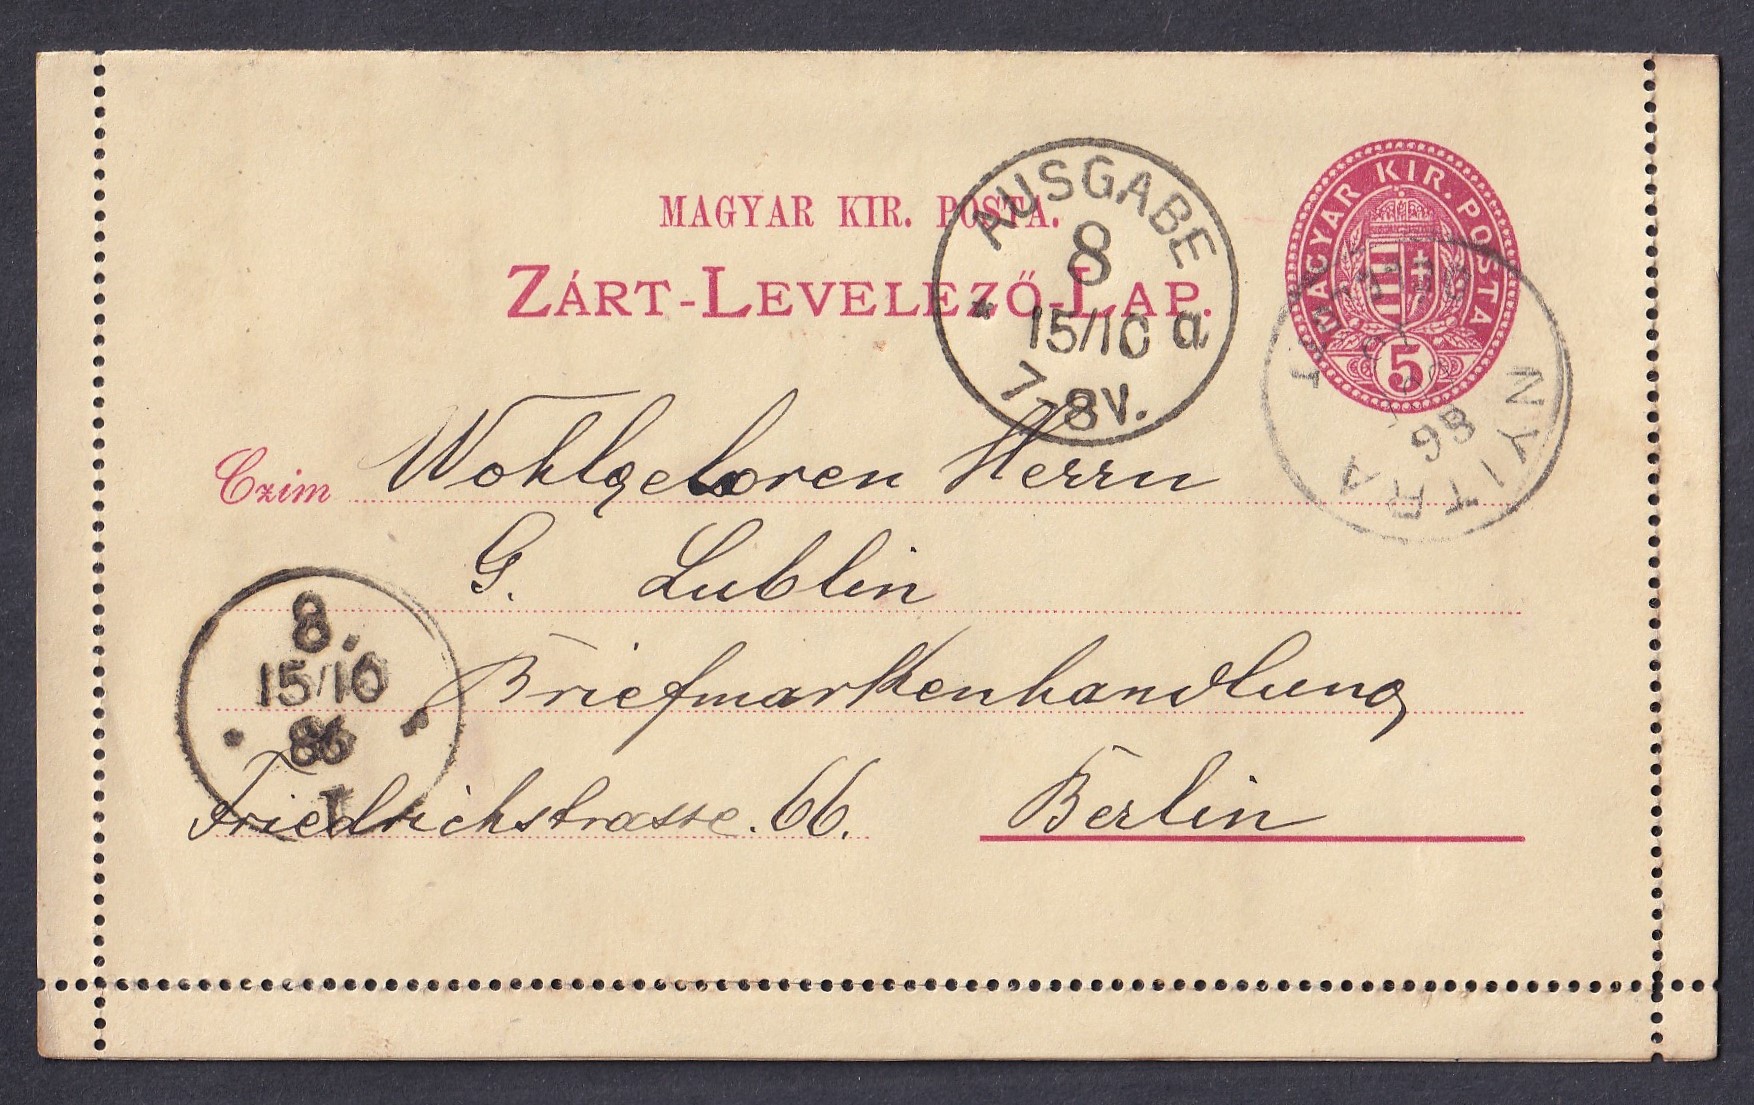 MAGYAR KIR. POSTA.
ZÁRT-LEVELEZŐ-LAP.
MAGYAR KIR. POSTA
5
AUSGABE
8
15/10 a
7-8V.
NYITRA
86
Czim Wohlgeboren Herrn
G. Lublin
Briefmarkenhandlung
Friedrichstrasse. 66. Berlin
8.
15/10
86